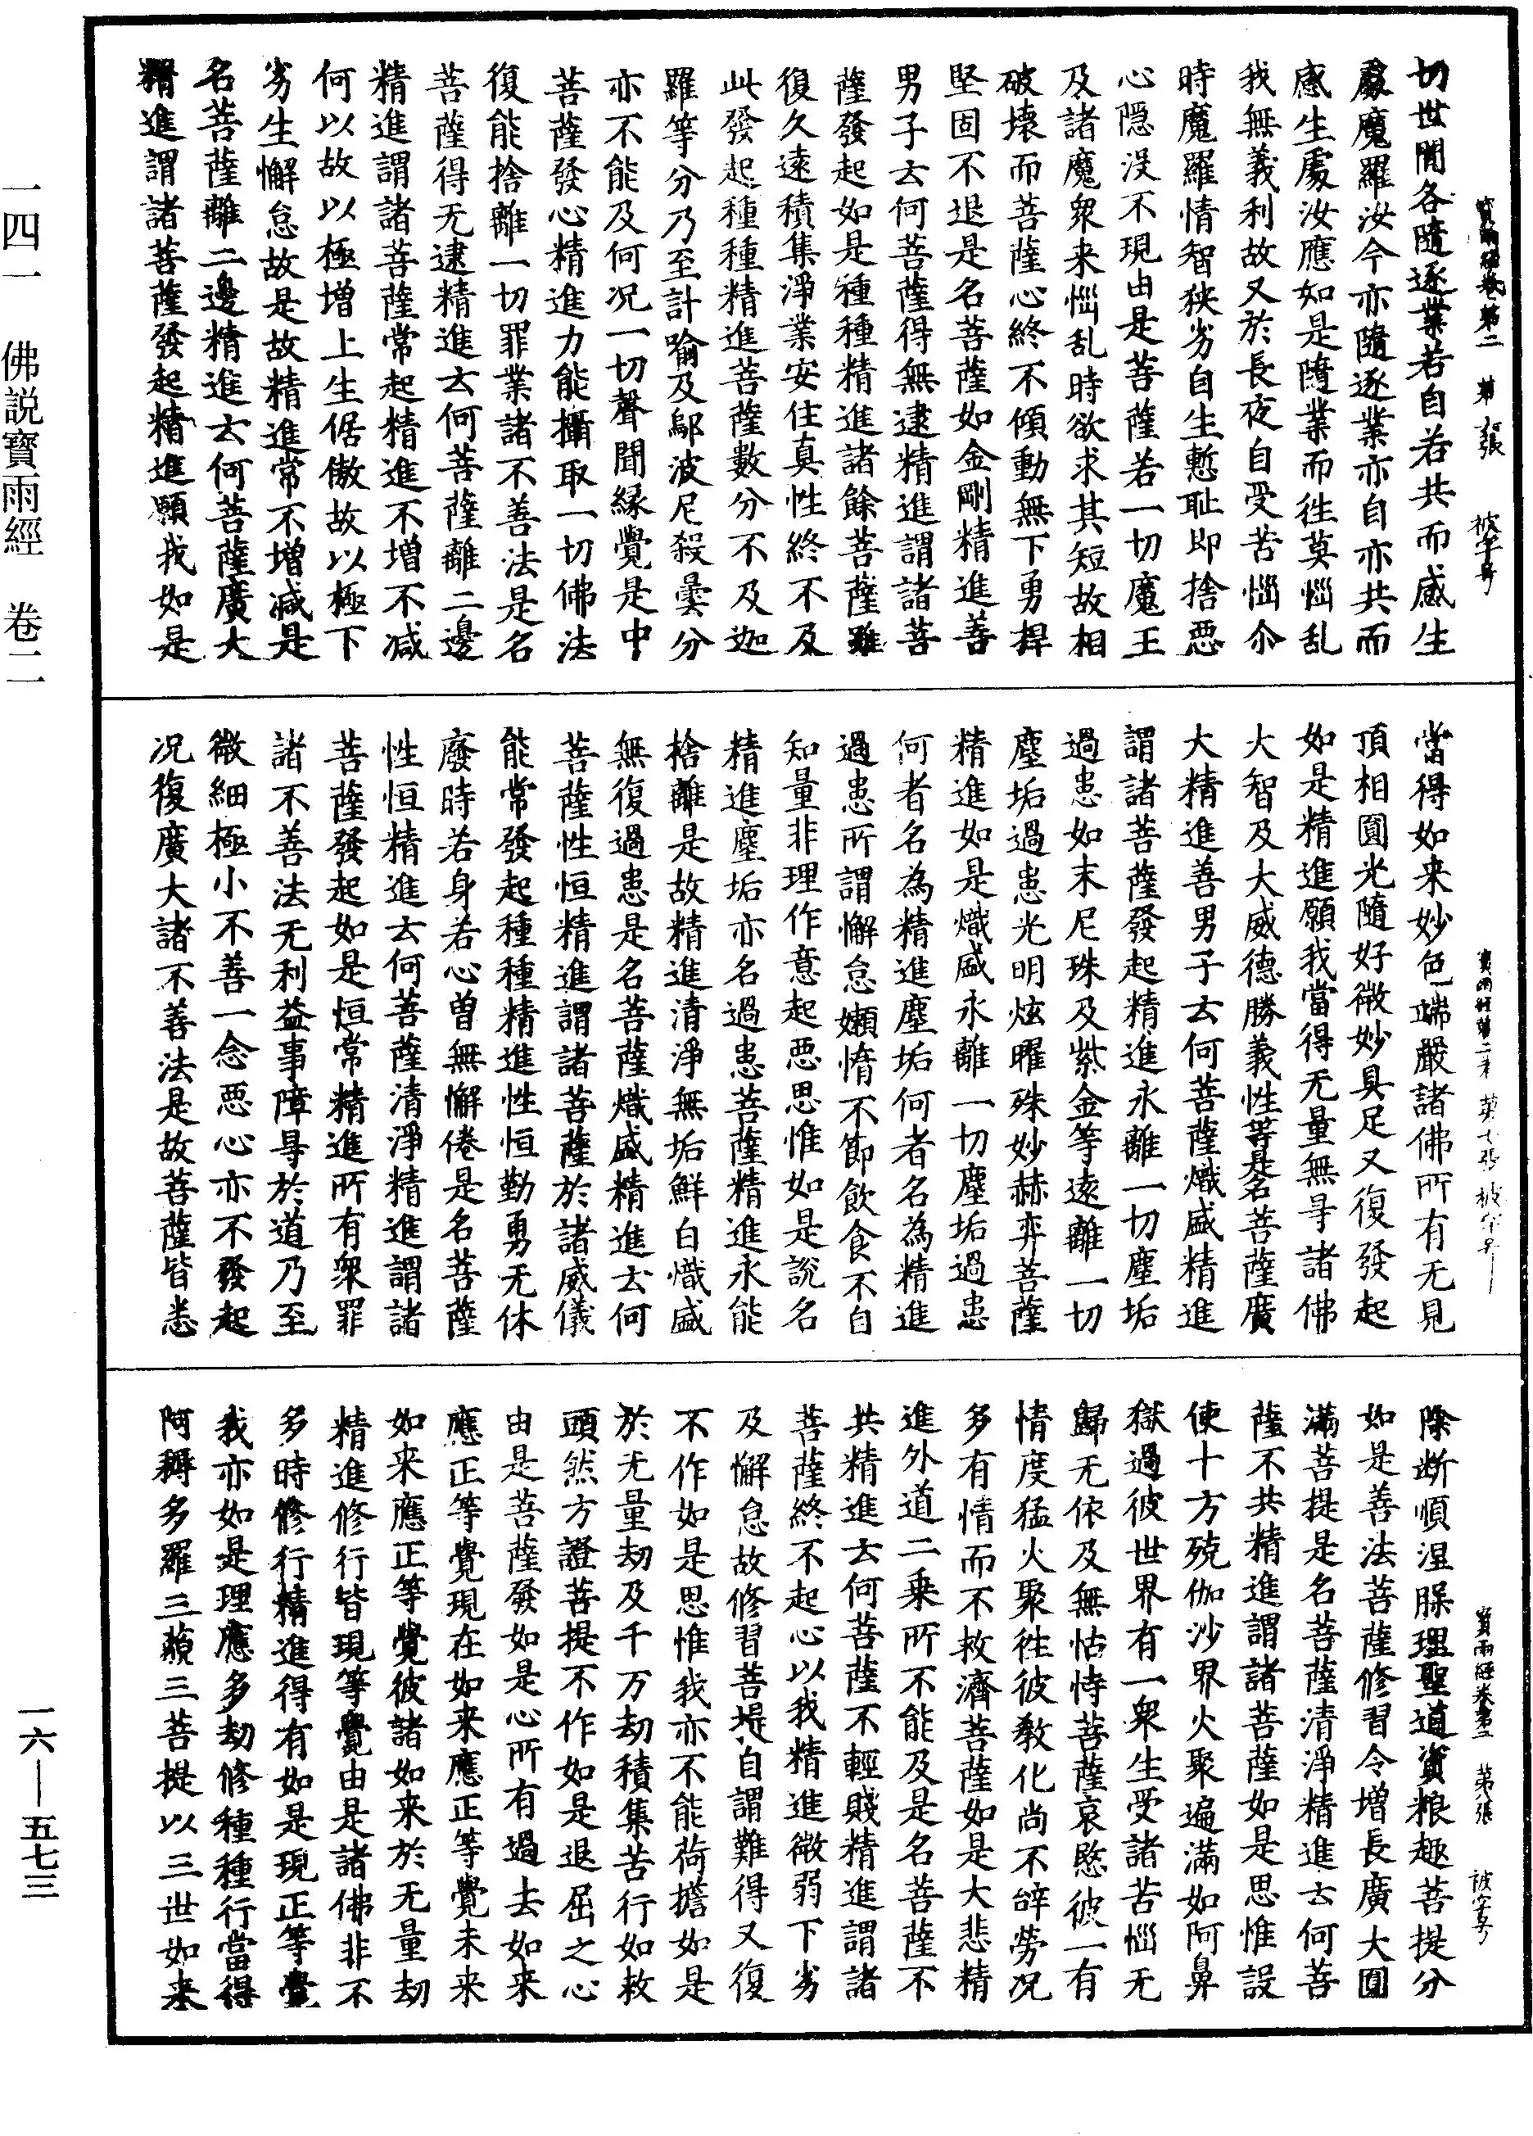 切世間各隨逐業若自若共而感生
處魔羅汝今亦隨逐業亦自亦共而
感生處汝應如是隨業而徃莫惱乱
我無義利故又於長夜自受苦惱尒
時魔羅情智狹劣自生慙耻即捨惡
心隱没不現由是菩薩若一切魔王
及諸魔衆来惱乱時欲求其短故相
破壞而菩薩心終不傾動無下勇捍
堅固不退是名菩薩如金剛精進善
男子云何菩薩得無逮精進謂諸菩
薩發起如是種種精進諸餘菩薩雖
復久遠積集淨業安住真性終不及
此發起種種精進菩薩數分不及迦
羅等分乃至計喻及鄔波尼殺曇分
亦不能及何况一切聲聞緣覺是中
菩薩發心精進力能攝取一切佛法
復能捨離一切罪業諸不善法是名
菩薩得无逮精進云何菩薩離二邊
精進謂諸菩薩常起精進不增不減
何以故以極增上生倨傲故以極下
劣生懈怠故是故精進常不增減是
名菩薩離二邊精進云何菩薩廣大
精進謂諸菩薩發起精進願我如是
寶雨經卷第二 第六張 被字号
當得如来妙色端嚴諸佛所有无見
頂相圓光隨好微妙具足又復發起
如是精進願我當得无量無㝵諸佛
大智及大威德勝義性等是名菩薩廣
大精進善男子云何菩薩熾盛精進
謂諸菩薩發起精進永離一切塵垢
過患如末尼珠及紫金等遠離一切
塵垢過患光明炫曜殊妙赫弈菩薩
精進如是熾盛永離一切塵垢過患
何者名為精進塵垢何者名為精進
過患所謂懈怠嬾惰不節飲食不自
知量非理作意起惡思惟如是說名
精進塵垢亦名過患菩薩精進永能
捨離是故精進清淨無垢鮮白熾盛
無復過患是名菩薩熾盛精進云何
菩薩性恒精進謂諸菩薩於諸威儀
能常發起種種精進性恒勤勇无休
廢時若身若心曽無懈倦是名菩薩
性恒精進云何菩薩清淨精進謂諸
菩薩發起如是恒常精進所有衆罪
諸不善法无利益事障㝵於道乃至
微細極小不善一念惡心亦不發起
况復廣大諸不善法是故菩薩皆悉
寶雨經第二卷 第七張 被字号
除断順湼臊理聖道資粮趣菩提分
如是善法菩薩修習令增長廣大圓
滿菩提是名菩薩清淨精進云何菩
薩不共精進謂諸菩薩如是思惟設
使十方殑伽沙界火聚遍滿如阿鼻
獄過彼世界有一衆生受諸苦惱无
歸无依及無怙恃菩薩哀愍彼一有
情度猛火聚徃彼教化尚不辝勞况
多有情而不救濟菩薩如是大悲精
進外道二乗所不能及是名菩薩不
共精進云何菩薩不輕賤精進謂諸
菩薩終不起心以我精進微弱下劣
及懈怠故修習菩提自謂難得又復
不作如是思惟我亦不能荷擔如是
於无量劫及千万劫積集苦行如救
頭然方證菩提不作如是退屈之心
由是菩薩發如是心所有過去如来
應正等覺現在如来應正等覺未来
如来應正等覺彼諸如来於无量劫
精進修行皆現等覺由是諸佛非不
多時修行精進得有如是現正等覺
我亦如是理應多劫修種種行當得
阿耨多羅三藐三菩提以三世如来
寶雨經卷第二 第八張 被字号
一四一 佛説寶雨經 卷二
一六——五七三